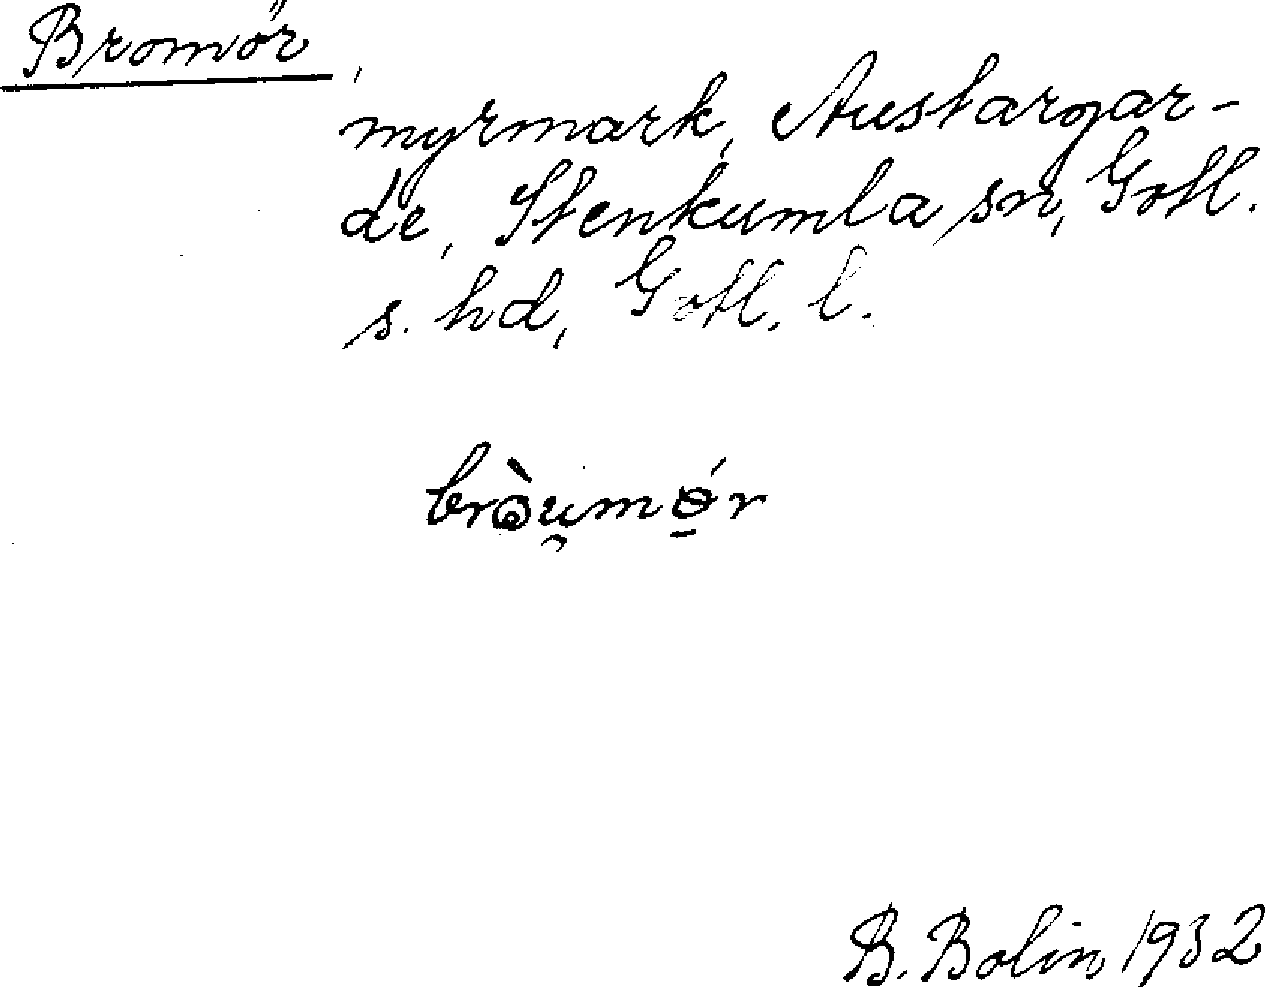 Bromör,
myrmark, Austargar-
de, Stenkumla sn, Gotl.
s. hd, Gotl. l.
bròu̯mǿ̱r
B. Bolin 1932